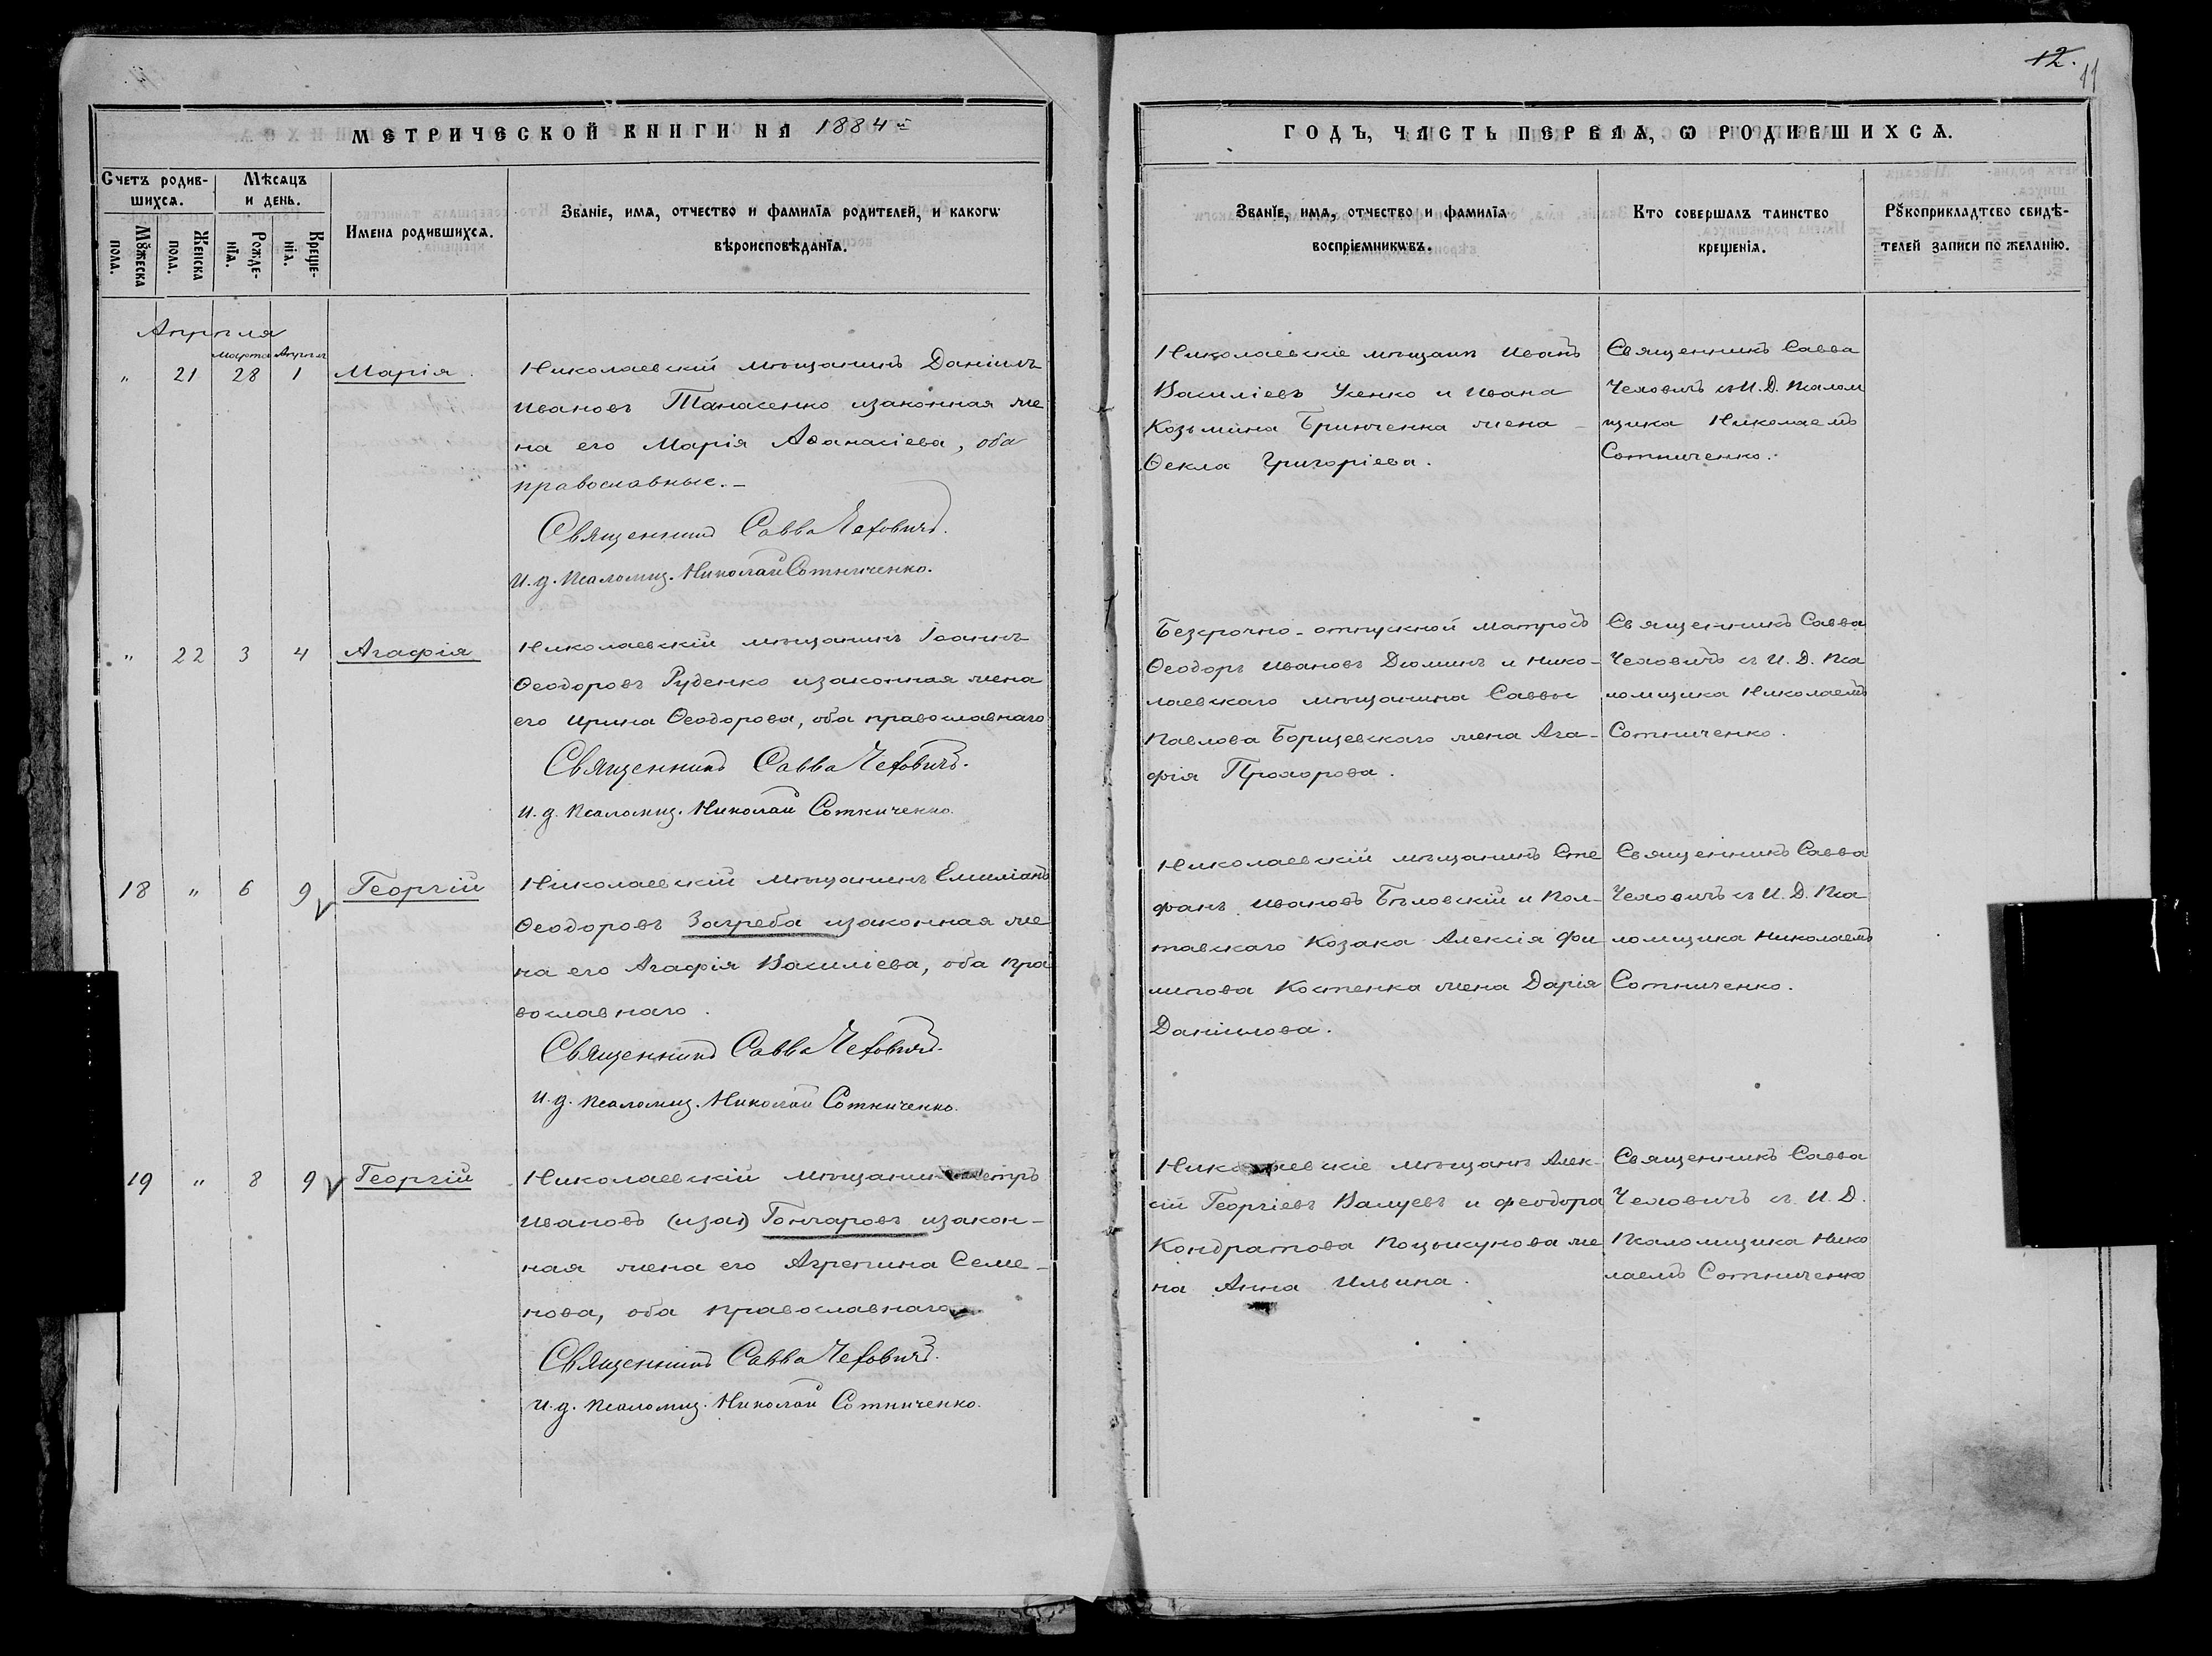 12.
11
МЕТРИЧЕСКОЙ КНИГИ НА 1884й
ГОДЪ, ЧАСТЬ ПЕРВАѦ, Ѡ РОДИВШИХСѦ.
Счетъ родив-
шихсѧ.
Мѣсѧцъ
и день.
Мꙋжеска
пола.
Женска
пола.
Рожде-
нїѧ.
Креще-
нїѧ.
Имена родившихсѧ.
Званїе, имѧ, отчество и фамилїѧ родителей, и какогѡ
вѣроисповѣданїѧ.
Званїе, имѧ, отчество и фамилїѧ
воспрїемникѡвъ.
Кто совершалъ таинство
крещенїѧ.
Рꙋкоприкладтсво свидѣ-
телей записи по желанїю.
Апрѣля
Марта Апрѣл
" 21 28 1 Марія.
Николаевскій мѣщанинъ Даніилъ
Ивановъ Танасенко изаконная же
на его Марія Аѳанасіева, оба
православные. –
Священникъ Савва Чеховичъ.
И. д. Псаломщ. Николай Сотниченко.
Николаевскіе мѣщанъ Иванъ
Василіевъ Усенко и Ивана
Козьмина Бринченка жена –
Ѳекла Григоріева.
Священникъ Савва
Чеховичъ съ И. Д. Псалом
щика Николаемъ
Сотниченко.
" 22 3 4 Агафія
Николаевскій мѣщанинъ Іоаннъ
Ѳеодоровъ Руденко изаконная жена
его Ирина Ѳеодорова, оба православнаго
Священникъ Савва Чеховичъ.
И. д. Псаломщ. Николай Сотниченко.
Безсрочно-отпускной матросъ
Ѳеодоръ Ивановъ Дюминъ и Нико-
лаевскаго мѣщанина Саввы
Павлова Борщевскаго жена Ага-
фія Прохорова.
Священникъ Савва
Чеховичъ съ И. Д. Пса
ломщика Николаемъ
Сотниченко.
18 " 6 9 Георгій
Николаевскій мѣщанинъ Емиліанъ
Ѳеодоровъ Загреба изаконная же
на его Агафія Василіева, оба пра
вославнаго.
Священникъ Савва Чеховичъ.
И. д. Псаломщ. Николай Сотниченко.
Николаевскій мѣщанинъ Сте
фанъ Ивановъ Бѣловскій и Пол-
тавскаго Козака Алексія Фи
липова Костенка жена Дарія
Даніилова.
Священникъ Савва
Чеховичъ съ И. Д. Пса
ломщика Николаемъ
Сотниченко.
19 " 8 9 Георгій
Николаевскій мѣщанинъ Петръ
Ивановъ (иза) Гончаровъ изакон-
ная жена его Агрепина Семе-
нова, оба православнаго.
Священникъ Савва Чеховичъ.
И. д. Псаломщ. Николай Сотниченко.
Николаевскіе мѣщанъ Алек-
сій Георгіевъ Валуевъ и Феодора
Кондратова Поцыкунова же
на Анна Ильина.
Священникъ Савва
Чеховичъ съ И. Д.
Псаломщика Нико
лаемъ Сотниченко